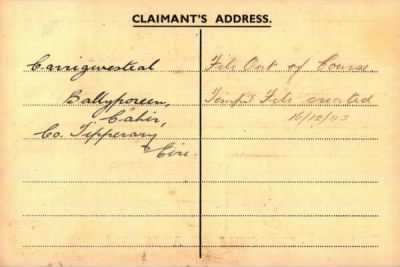 CLAIMANT'S ADDRESS.
Carrigvestial
Ballyporeen,
Cahir,
Co. Tipperary
Eire.
File Out of Course.
Temp'y File created
16/12/43